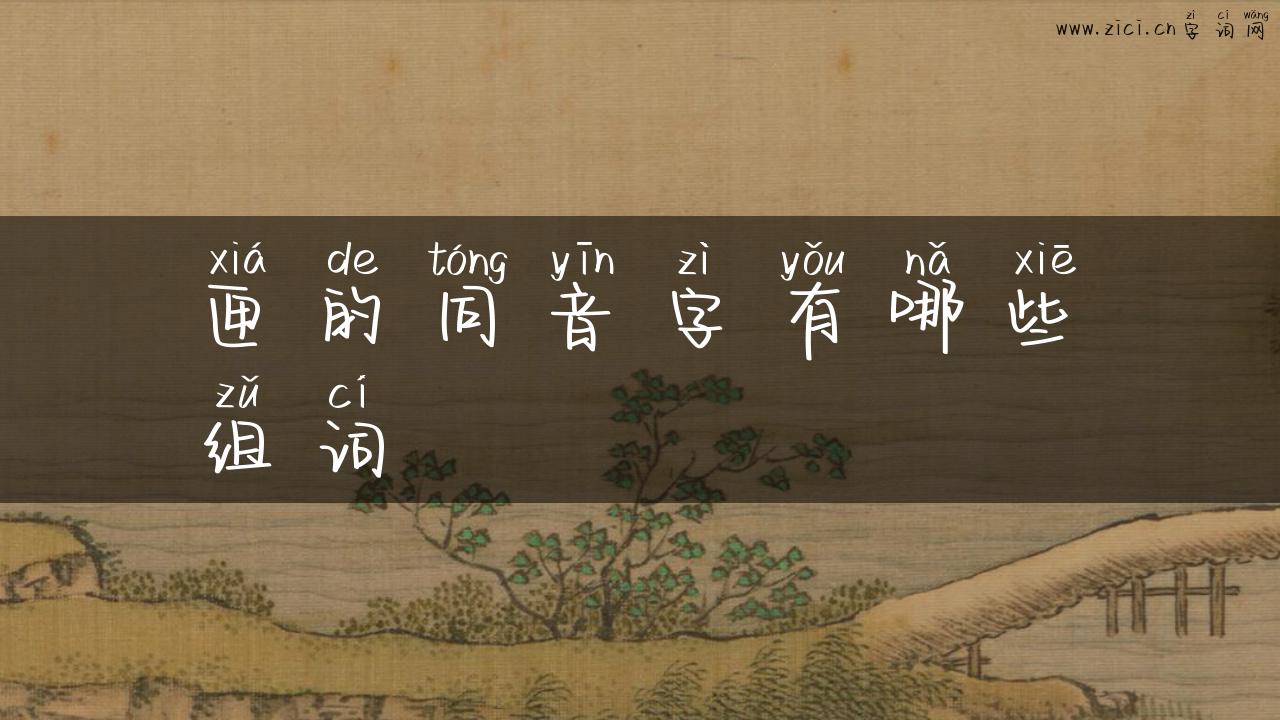 zì cí wǎng
www.zici.cn 字 词 网
xiá de tóng yīn zì yǒu nǎ xiē
匣 的 同 音 字 有 哪 些
zǔ cí
组 词